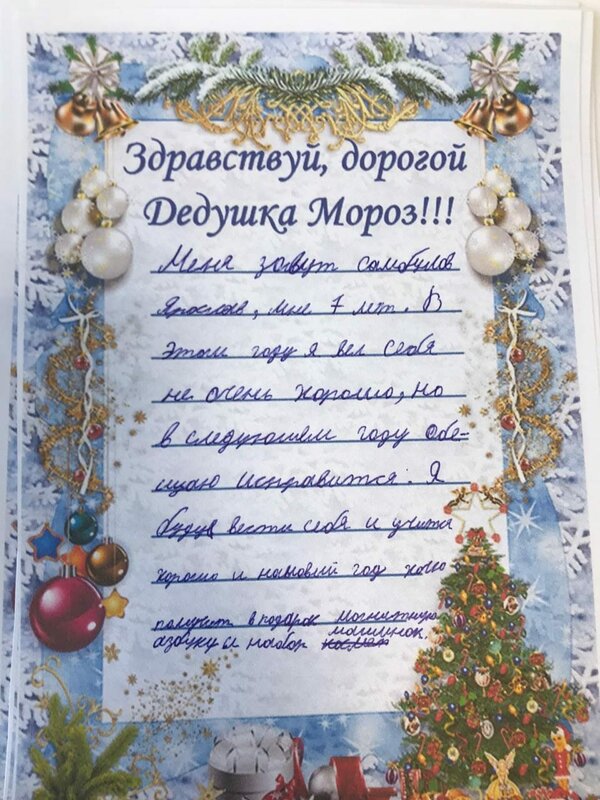 Здравствуй, дорогой
Дедушка Мороз!!!
Меня зовут Самбулов
Ярослав, мне 7 лет. В
этом году я вел себя
не очень хорошо, но
в следующем году обе-
щаю исправится. Я
буду вести себя и учится
хорошо и на новый год хочу
получить в подарок магнитную
азбуку и набор машинок.